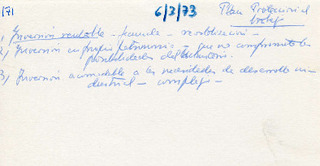 (7)
6/2/73
Plan Proteccion al
1) Inversión rentable - - revalorización -
2) Inversión en propio patrimonio - que no comprometa las
posibilidades del
3) Inversión acomodable a las necesidades de desarrollo in-
dustrial - complejo -